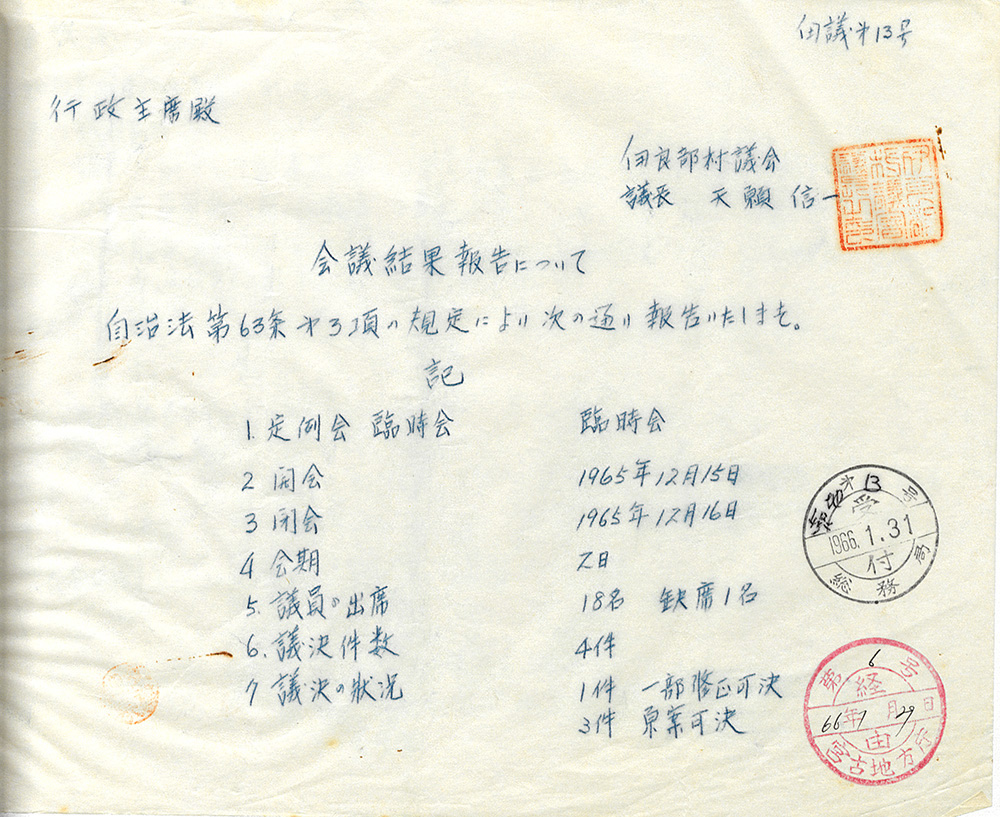 伊議才13号
行政主席殿
伊良部村議会
議長 天願 信一
会議結果報告について
自治法第63条才3項の規定により次の通り報告いたします。
記
1. 定例会 臨時会 臨時会
2 開会 1965年12月15日
3 閉会 1965年12月16日
4 会期 2日
5. 議員の出席 18名 缺席1名
6. 議決件数 4件
7 議決の狀况 1件 一部修正可決
3件 原案可決
才13号
受
1966.1.31
付
総務局
第6号
経
66年1月29日
由
宮古地方庁